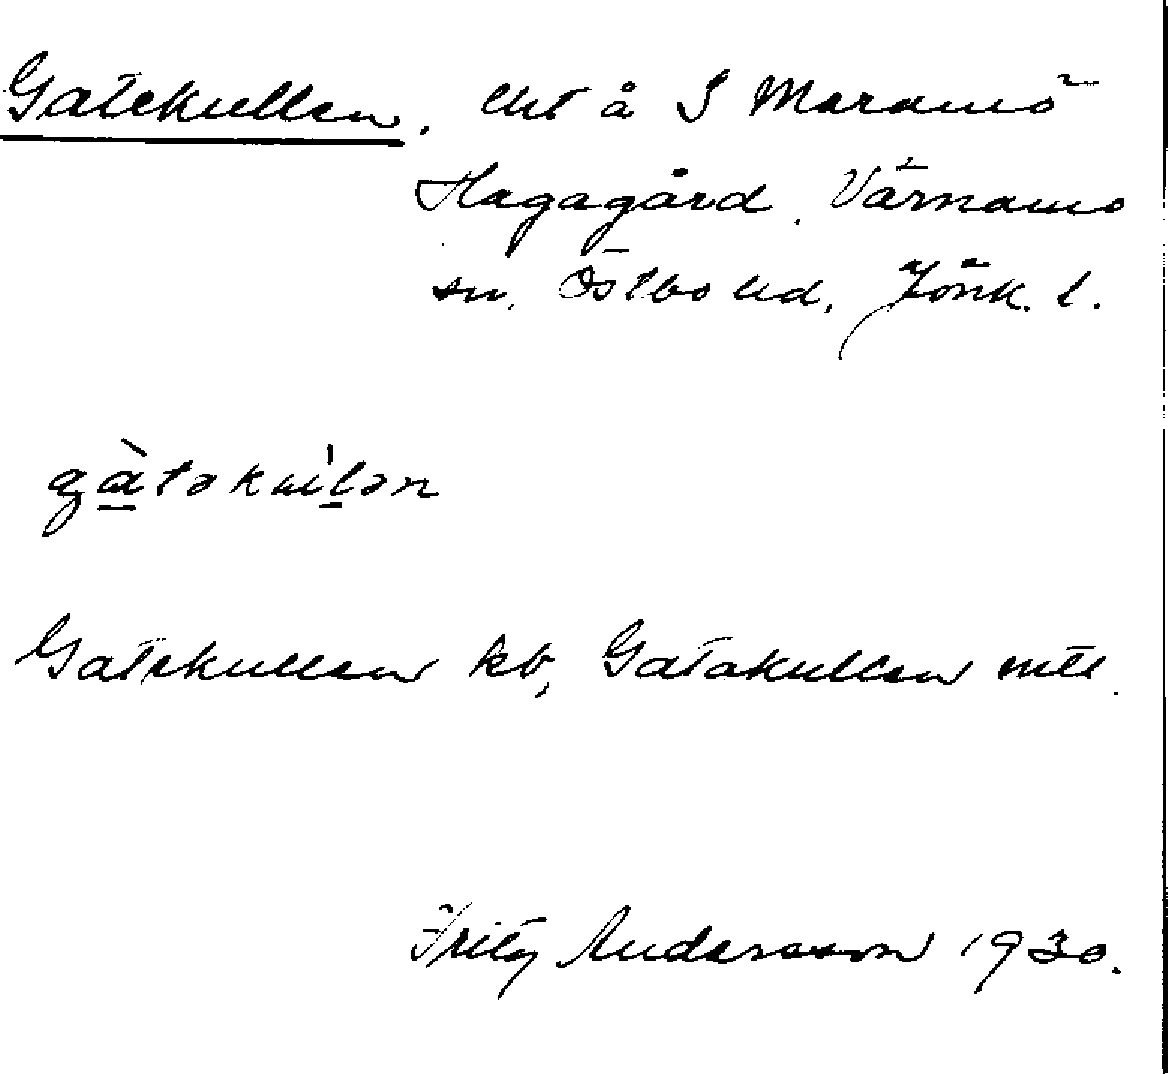 Gatekullen, lht å S Maramö
Hagagård, Värnamo
sn, Östbo hd, Jönk. l.
gàtəkuˈlən
Gatekullen kb, Gatakullen mtl.
Fritz Andersson 1930.